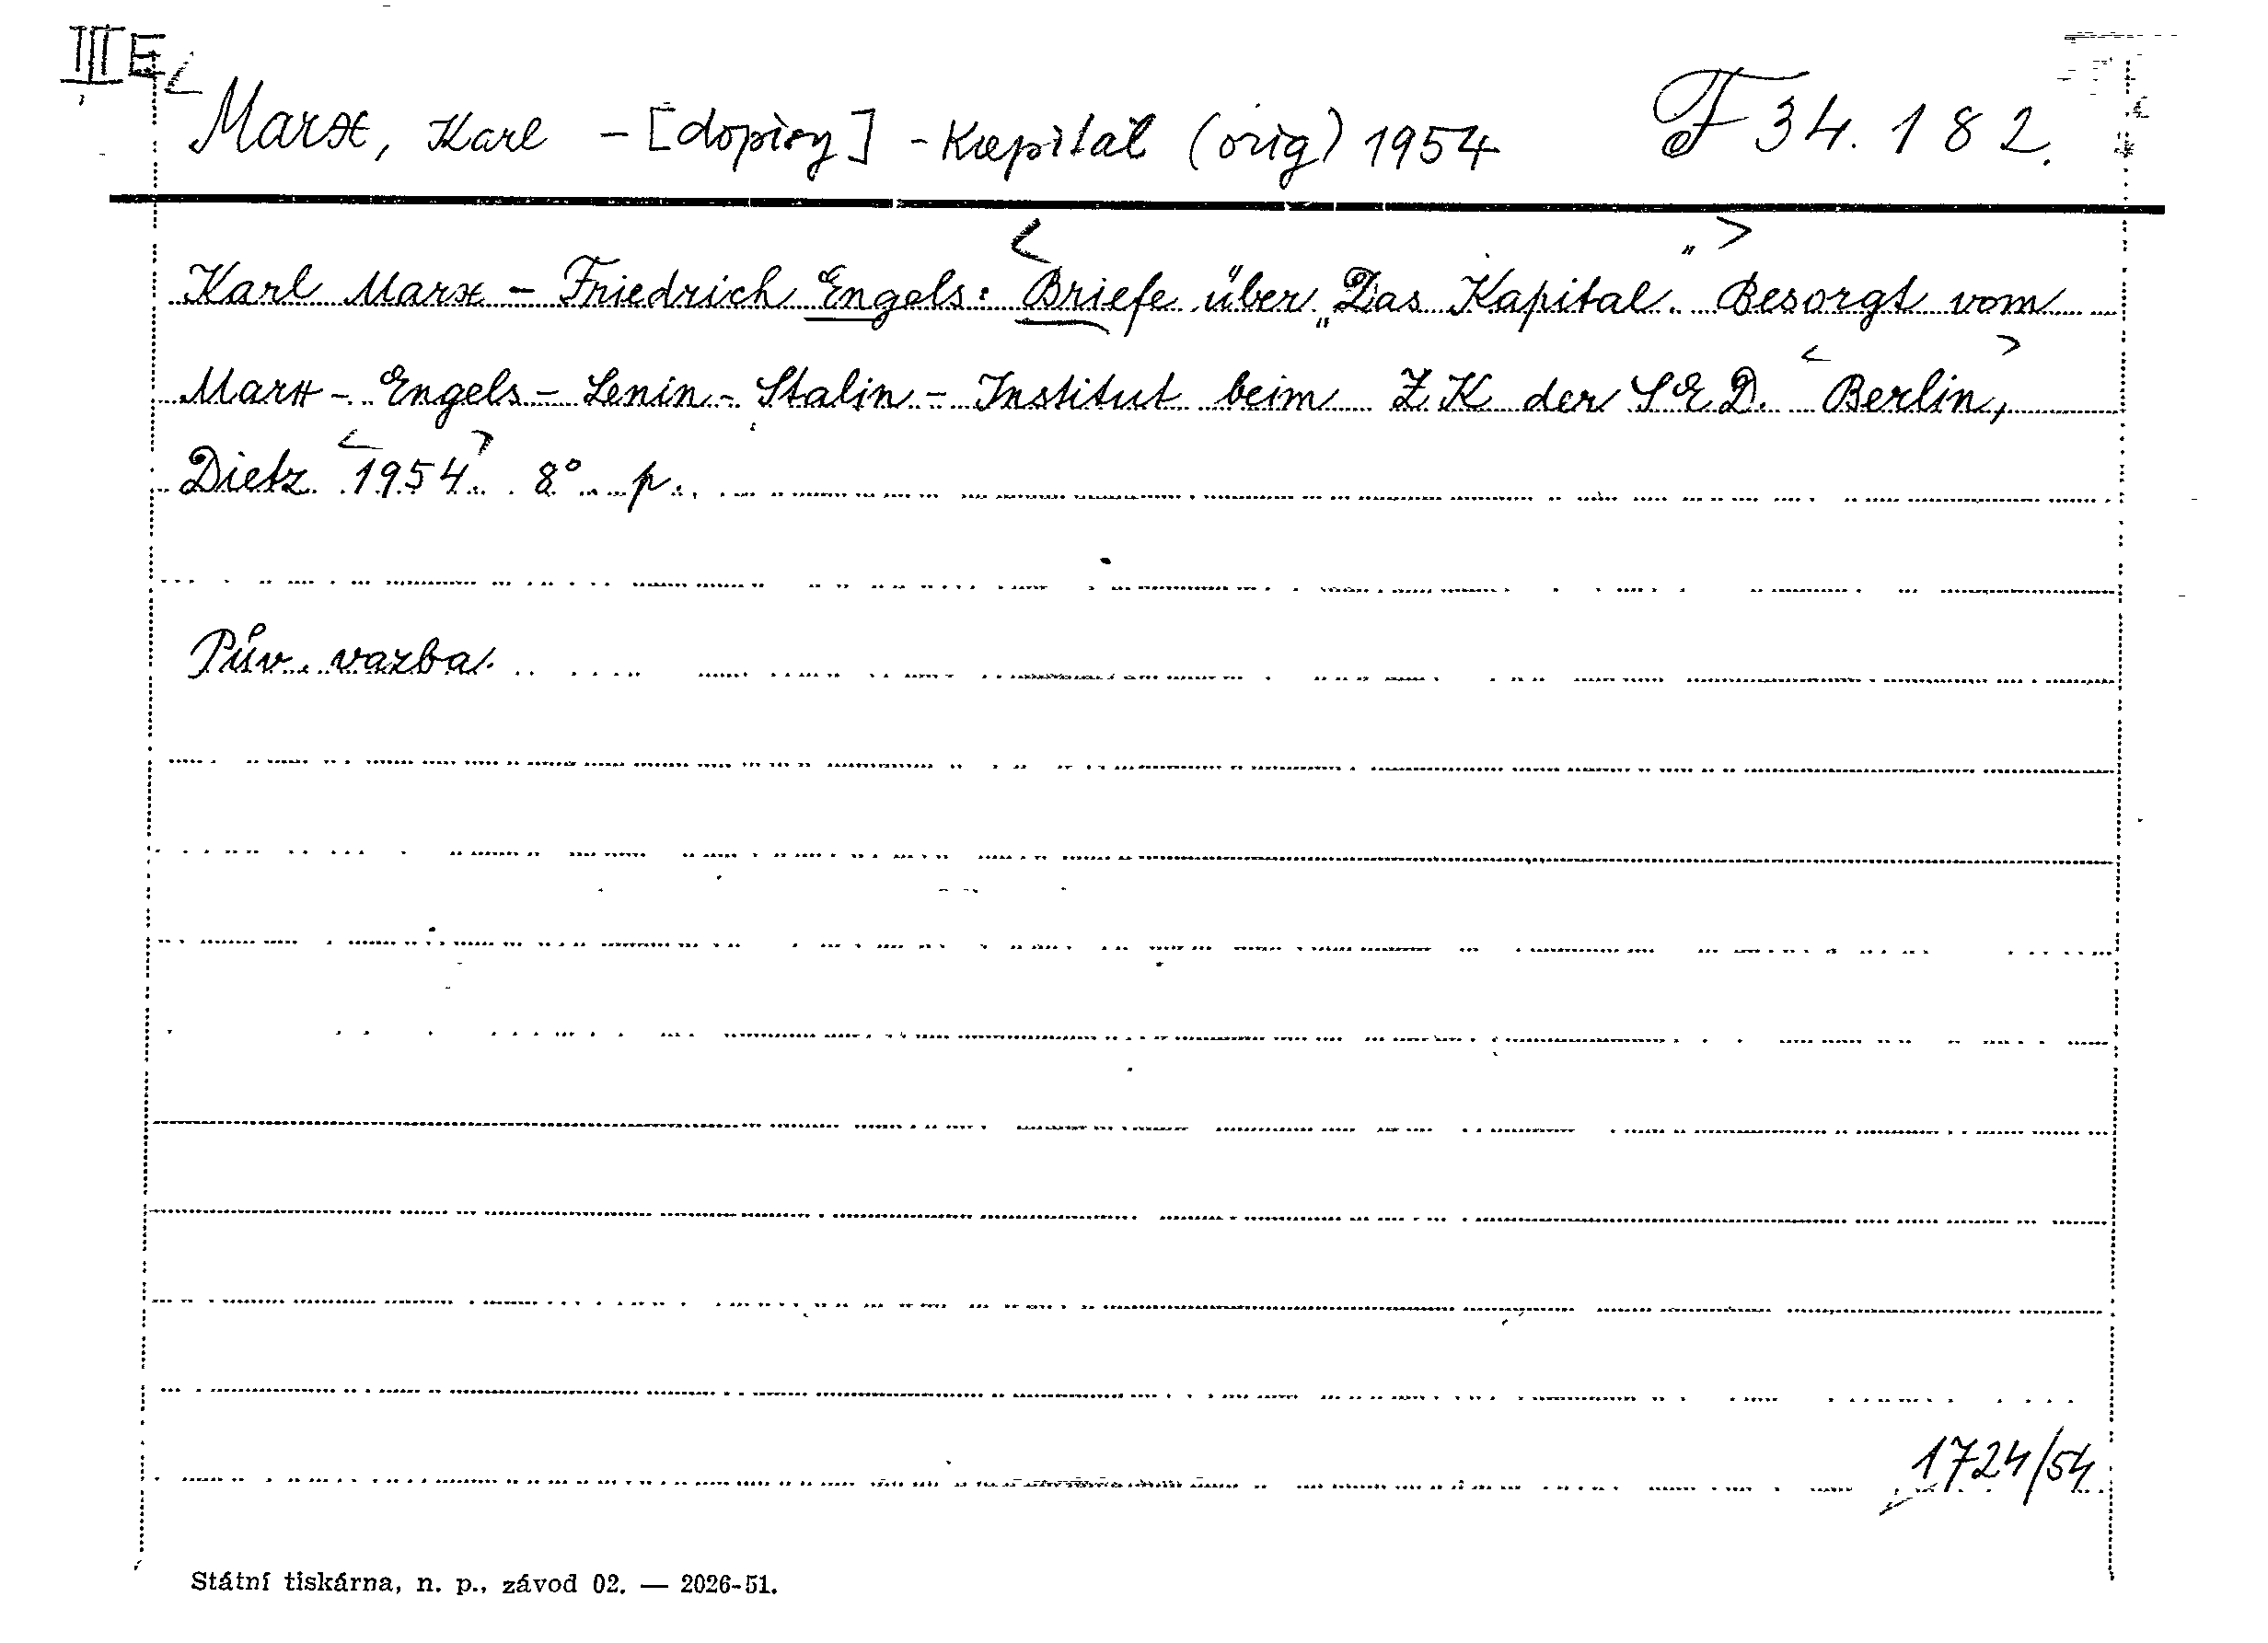 III E
Marx, Karl - [dopisy] - Kapitál (orig) 1954 F 34.182.
Karl Marx - Friedrich Engels: <Briefe über „Das Kapital."> Besorgt vom
Marx - Engels - Lenin - Stalin - Institut beim ZK der SED. <Berlin,>
Dietz <1954>. 8° p.
Pův. vazba.
1724/54
Státní tiskárna, n. p., závod 02. — 2026-51.